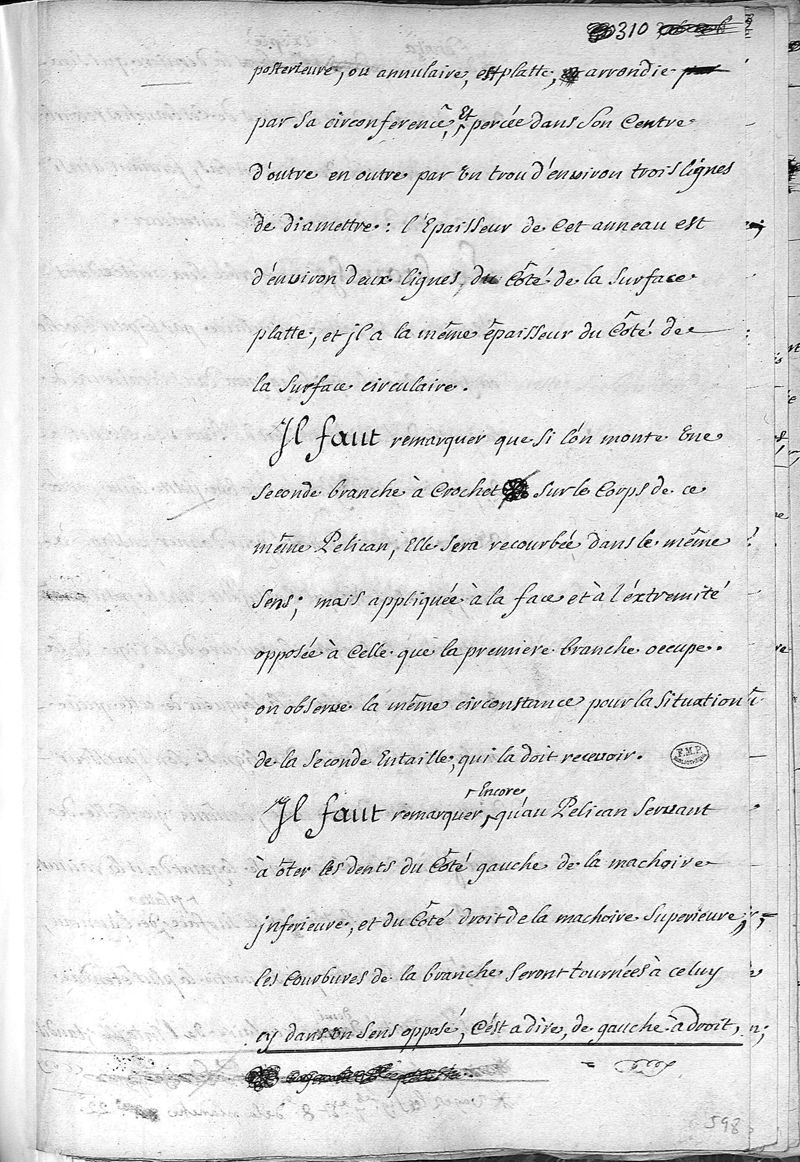 310
posterieure, ou annulaire, est platte, arrondie
par sa circonference, Et percée dans son Centre
d'outre en outre par Un trou d'environ trois lignes
de diamettre: l'Epaisseur de Cet anneau est
d'environ deux lignes, du Côté de la Surface
platte, et jl a la même épaisseur du Côté de
la Surface circulaire.
Jl faut remarquer que si lon monte Une
seconde branche à Crochet sur le Corps de ce
même Pelican, Elle sera recourbée dans le même
sens; mais appliquée à la face et à l'éxtremité
opposée à Celle que la premiere branche occupe.
on observe la même circonstance pour la situation
de la seconde Entaille, qui la doit recevoir.
F.M.P.
Jl faut remarquer Encore, qu'au Pelican Servant
à ôter les dents du Côté gauche de la machoire
jnferieure, et du Côté droit de la machoire Superieure,
les Courbures de la branche seront tournées à celuy
cy dans un sens opposé, C'ést a dire, de gauche à droit,
598